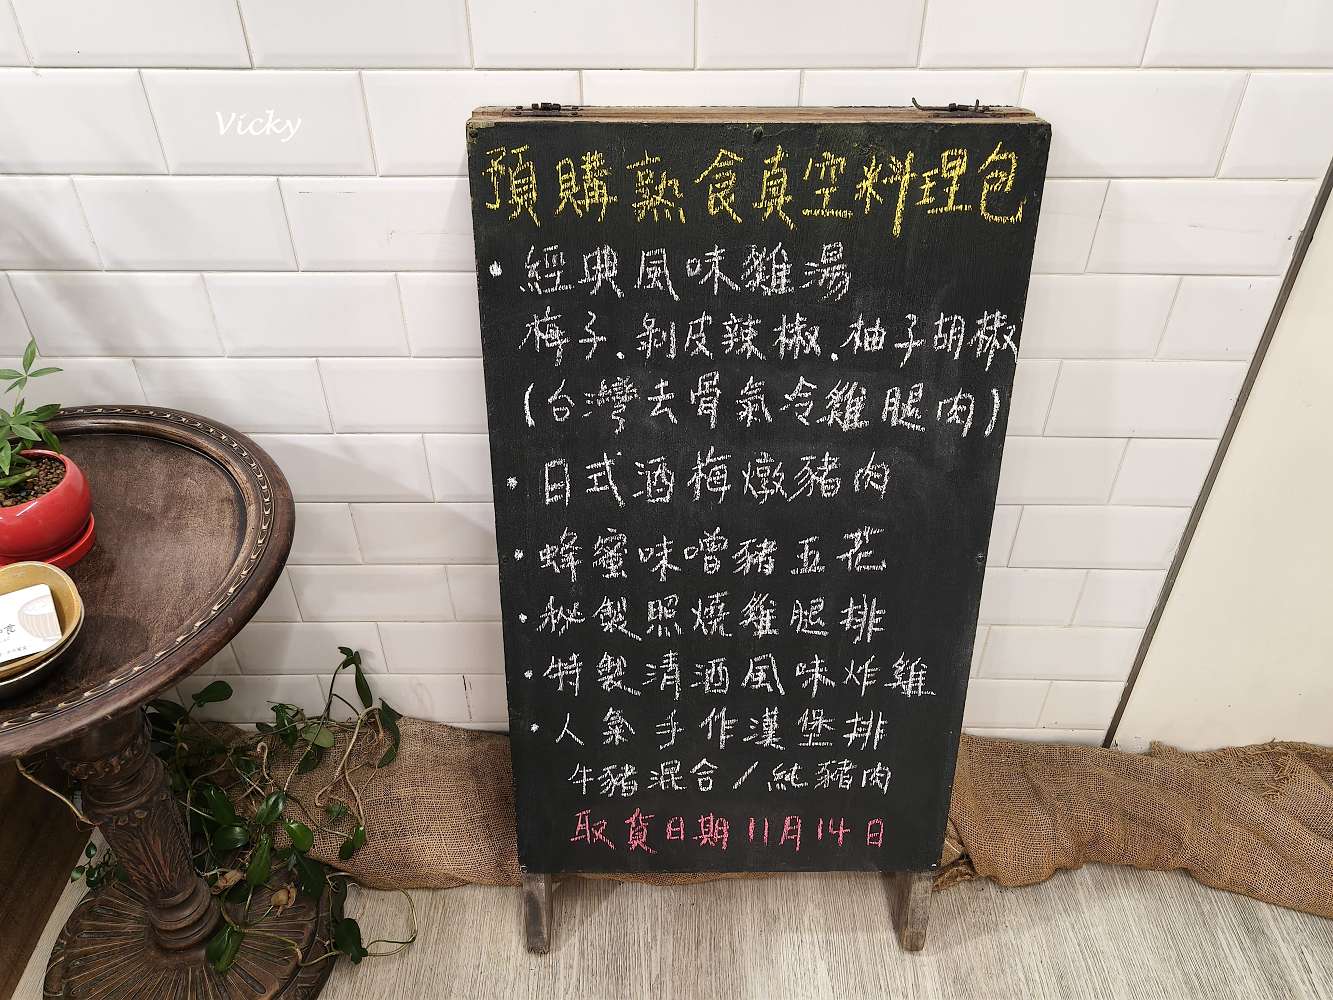 Vicky
預購熟食真空料理包
·經典風味雞湯
梅子.剝皮辣椒.柚子胡椒
(台灣去骨氣冷雞腿肉)
·日式酒梅燉豬肉
·蜂蜜味噌豬五花
·秘製照燒雞腿排
·特製清酒風味炸雞
·人氣手作漢堡排
牛豬混合/純豬肉
取貨日期11月14日
食